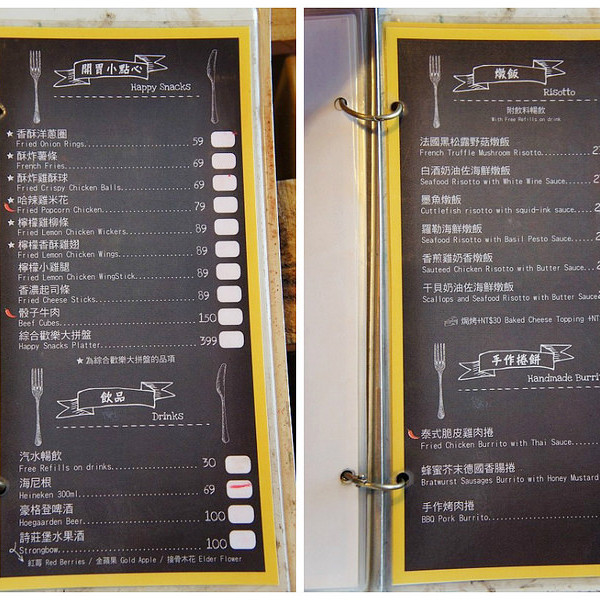 開胃小點心
Happy Snacks
★ 香酥洋蔥圈
Fried Onion Rings 59
★ 酥炸薯條
French Fries 69
★ 酥炸雞酥球
Fried Crispy Chicken Balls 69
★ 哈辣雞米花
Fried Popcorn Chicken 79
★ 檸檬雞柳條
Fried Lemon Chicken Wickers 89
★ 檸檬香酥雞翅
Fried Lemon Chicken Wings 89
檸檬小雞腿
Fried Lemon Chicken WingStick 89
香濃起司條
Fried Cheese Sticks 89
骰子牛肉
Beef Cubes 150
綜合歡樂大拼盤
Happy Snacks Platter 399
★為綜合歡樂大拼盤的品項
飲品
Drinks
汽水暢飲
Free Refills on drinks 30
海尼根
Heineken 300ml 69
豪格登啤酒
Hoegaarden Beer 100
詩莊堡水果酒
Strongbow 100
紅莓 Red Berries / 金蘋果 Gold Apple / 接骨木花 Elder Flower
燉飯
Risotto
附飲料暢飲
With Free Refills on drink
法國黑松露野菇燉飯
French Truffle Mushroom Risotto
白酒奶油佐海鮮燉飯
Seafood Risotto with White Wine Sauce
墨魚燉飯
Cuttlefish risotto with squid-ink sauce
羅勒海鮮燉飯
Seafood Risotto with Basil Pesto Sauce
香煎雞奶香燉飯
Sauteed Chicken Risotto with Butter Sauce
干貝奶油佐海鮮燉飯
Scallops and Seafood Risotto with Butter
焗烤+NT$30 Baked Cheese Topping +NT
手作捲餅
Handmade Burri
泰式脆皮雞肉捲
Fried Chicken Burrito with Thai Sauce
蜂蜜芥末德國香腸捲
Bratwurst Sausages Burrito with Honey Mustard
手作烤肉捲
BBQ Pork Burrito